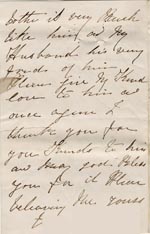 both it very Much
like him as My
Husband his very
fonds of him
Please give My kind
love to him as
once again I
thank you for
you kinds to him
and may god Bless
you for it
beleaving Me yours